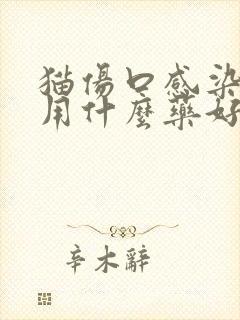 猫傷口感染
用什麼藥好
辛木辭